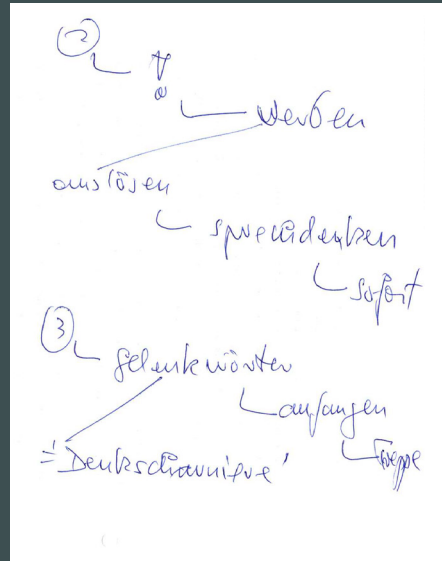 2
!
Verben
auslösen
sprechdenken
sofort
3
Gelenkwörter
anfangen
= 'Denkscharniere'
Treppe